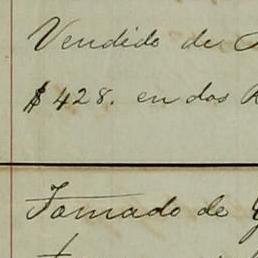 Vendido de
$428. en dos
Tomado de